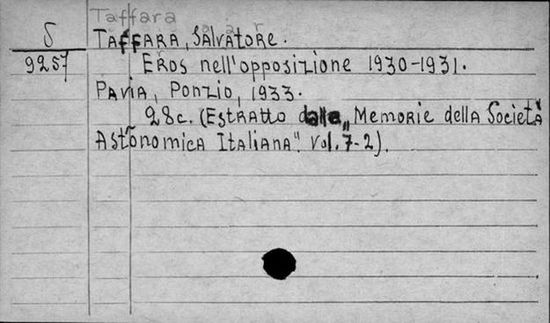 Taffara
5
TAFFARA, SALVATORE.
9257
EROS nell'opposizione 1930-1931.
PAVIA, PONZIO, 1933.
28c. (Estratto dalle „Memorie della Società
Astronomica Italiana". Vol. 7-2).